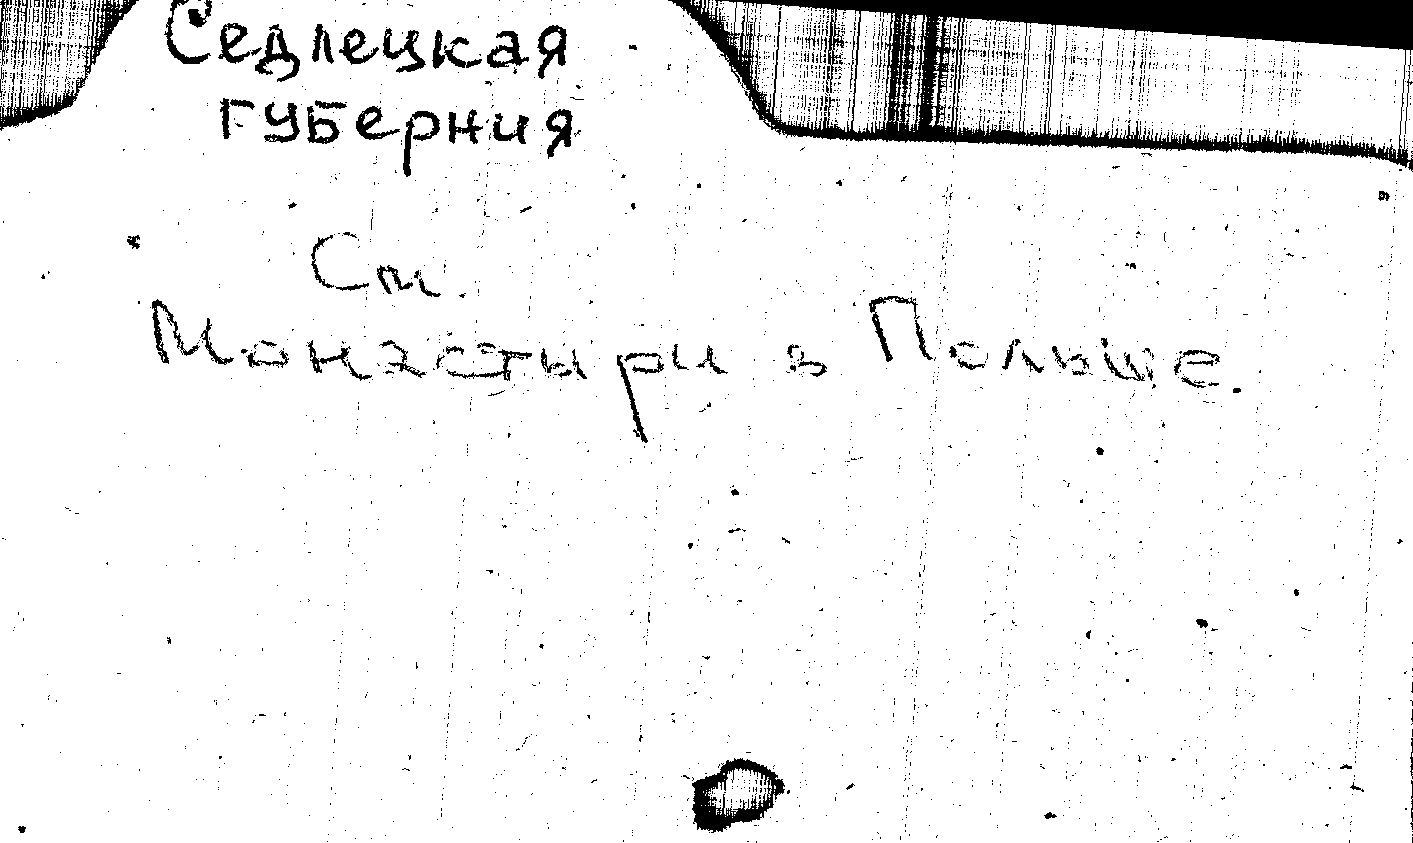 Седлецкая
губерния
См.
Монастыри в Польше.